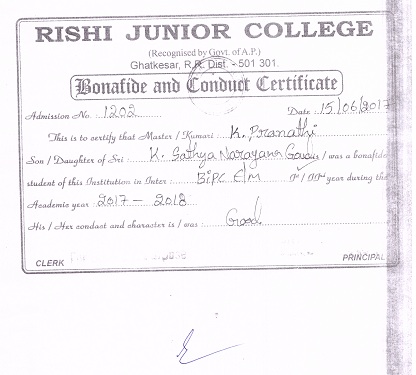 RISHI JUNIOR COLLEGE
(Recognised by Govt. of A.P.)
Ghatkesar, R.R. Dist. - 501 301.
Bonafide and Conduct Certificate
Admission No. 1202 Date : 15/06/2017
This is to certify that Master / Kumari : K. Pranathi
Son / Daughter of Sri : K. Sathya Narayana Goud is / was a bonafide
student of this Institution in Inter : BiPC E/M year during the
Academic year : 2017 - 2018
His / Her conduct and character is / was : Good.
CLERK PRINCIPAL